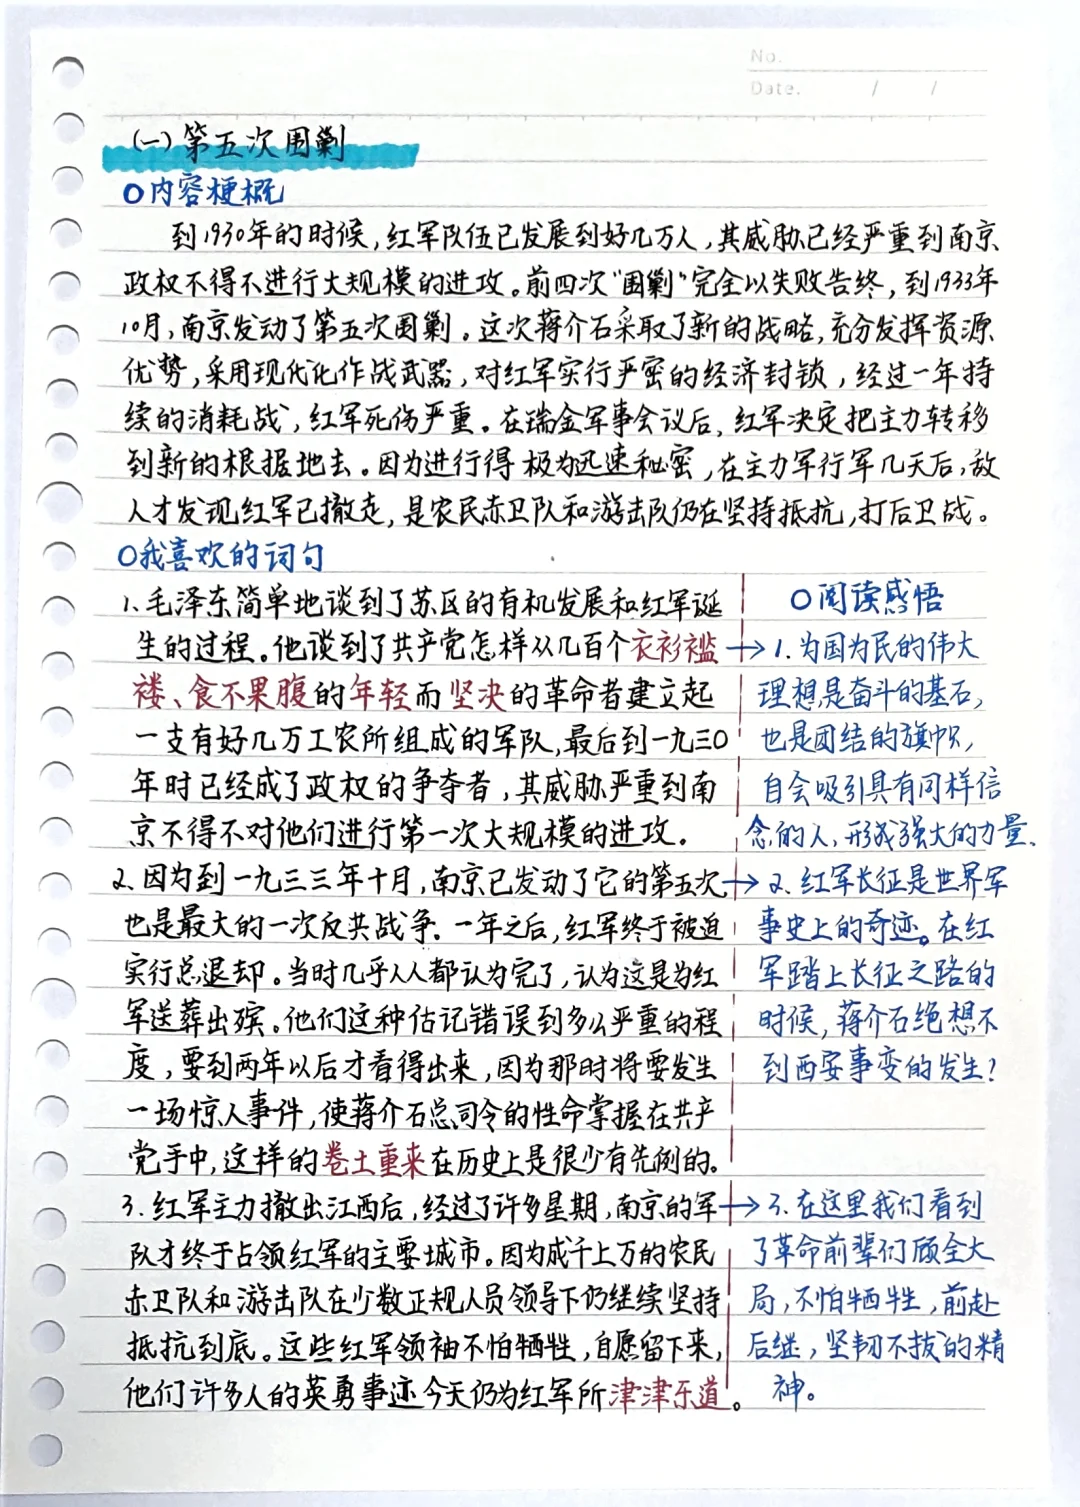 No.
Date. / /
(一)第五次围剿
O内容梗概
到1930年的时候,红军队伍已发展到好几万人,其威胁已经严重到南京
政权不得不进行大规模的进攻。前四次"围剿"完全以失败告终,到1933年
10月,南京发动了第五次围剿。这次蒋介石采取了新的战略,充分发挥资源
优势,采用现代化作战武器,对红军实行严密的经济封锁,经过一年持
续的消耗战,红军死伤严重。在瑞金军事会议后,红军决定把主力转移
到新的根据地去。因为进行得极为迅速秘密,在主力军行军几天后,敌
人才发现红军已撤走,是农民赤卫队和游击队仍在坚持抵抗,打后卫战。
O我喜欢的词句
1.毛泽东简单地谈到了苏区的有机发展和红军诞
生的过程。他谈到了共产党怎样从几百个衣衫褴
褛、食不果腹的年轻而坚决的革命者建立起
一支有好几万工农所组成的军队,最后到一九三〇
年时已经成了政权的争夺者,其威胁严重到南
京不得不对他们进行第一次大规模的进攻。
2.因为到一九三三年十月,南京已发动了它的第五次
也是最大的一次反共战争.一年之后,红军终于被迫
实行总退却。当时几乎人人都认为完了,认为这是为红
军送葬出殡。他们这种估记错误到多么严重的程
度,要到两年以后才看得出来,因为那时将要发生
一场惊人事件,使蒋介石总司令的性命掌握在共产
党手中,这样的卷土重来在历史上是很少有先例的。
3.红军主力撤出江西后,经过了许多星期,南京的军
队才终于占领红军的主要城市。因为成千上万的农民
赤卫队和游击队在少数正规人员领导下仍继续坚持
抵抗到底。这些红军领袖不怕牺牲,自愿留下来,
他们许多人的英勇事迹今天仍为红军所津津乐道。
O阅读感悟
→1.为国为民的伟大
理想是奋斗的基石,
也是团结的旗帜,
自会吸引具有同样信
念的人,形成强大的力量.
→2.红军长征是世界军
事史上的奇迹。在红
军踏上长征之路的
时候,蒋介石绝想不
到西安事变的发生?
→3.在这里我们看到
了革命前辈们顾全大
局,不怕牺牲,前赴
后继,坚韧不拔的精
神。